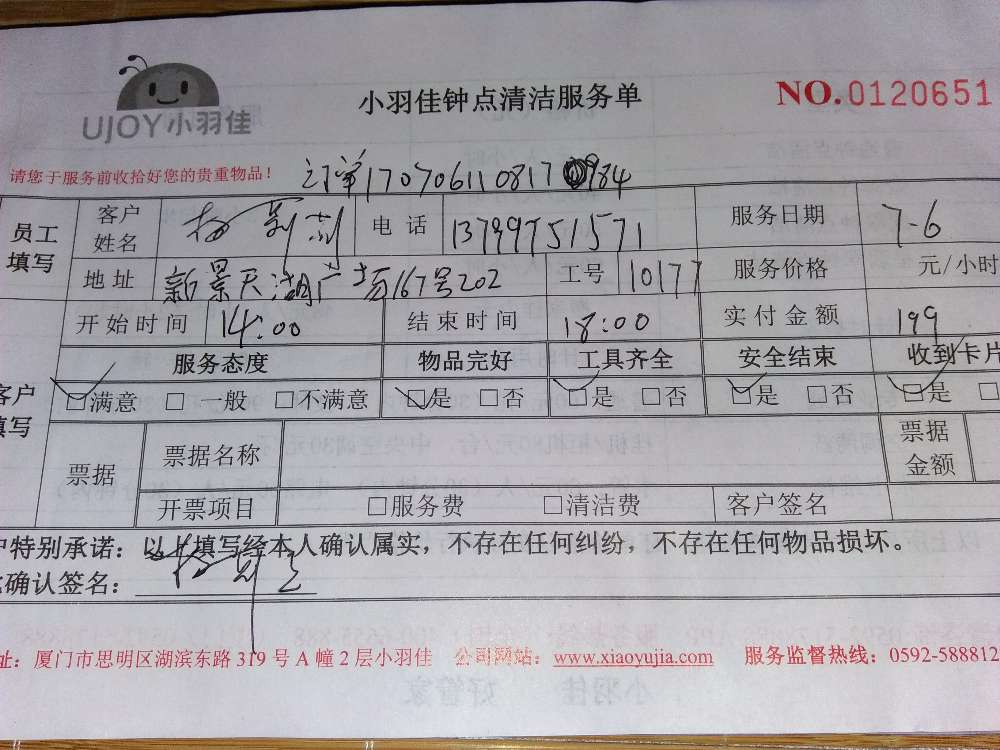 UJOY小羽佳
小羽佳钟点清洁服务单
NO.0120651
请您于服务前收拾好您的贵重物品！
订单170706110817 984
员工填写 客户姓名 杨 电话 13799751571 服务日期 7-6
地址 新景天湖广场167号202 工号 10177 服务价格 元/小时
开始时间 14:00 结束时间 18:00 实付金额 199
服务态度 物品完好 工具齐全 安全结束 收到卡片
客户填写 □满意 □一般 □不满意 □是 □否 □是 □否 □是 □否 □是 □
票据 票据名称 票据金额
开票项目 □服务费 □清洁费 客户签名
户特别承诺：以上填写经本人确认属实，不存在任何纠纷，不存在任何物品损坏。
确认签名：
址：厦门市思明区湖滨东路319号A幢2层小羽佳 公司网站：www.xiaoyujia.com 服务监督热线：0592-588812